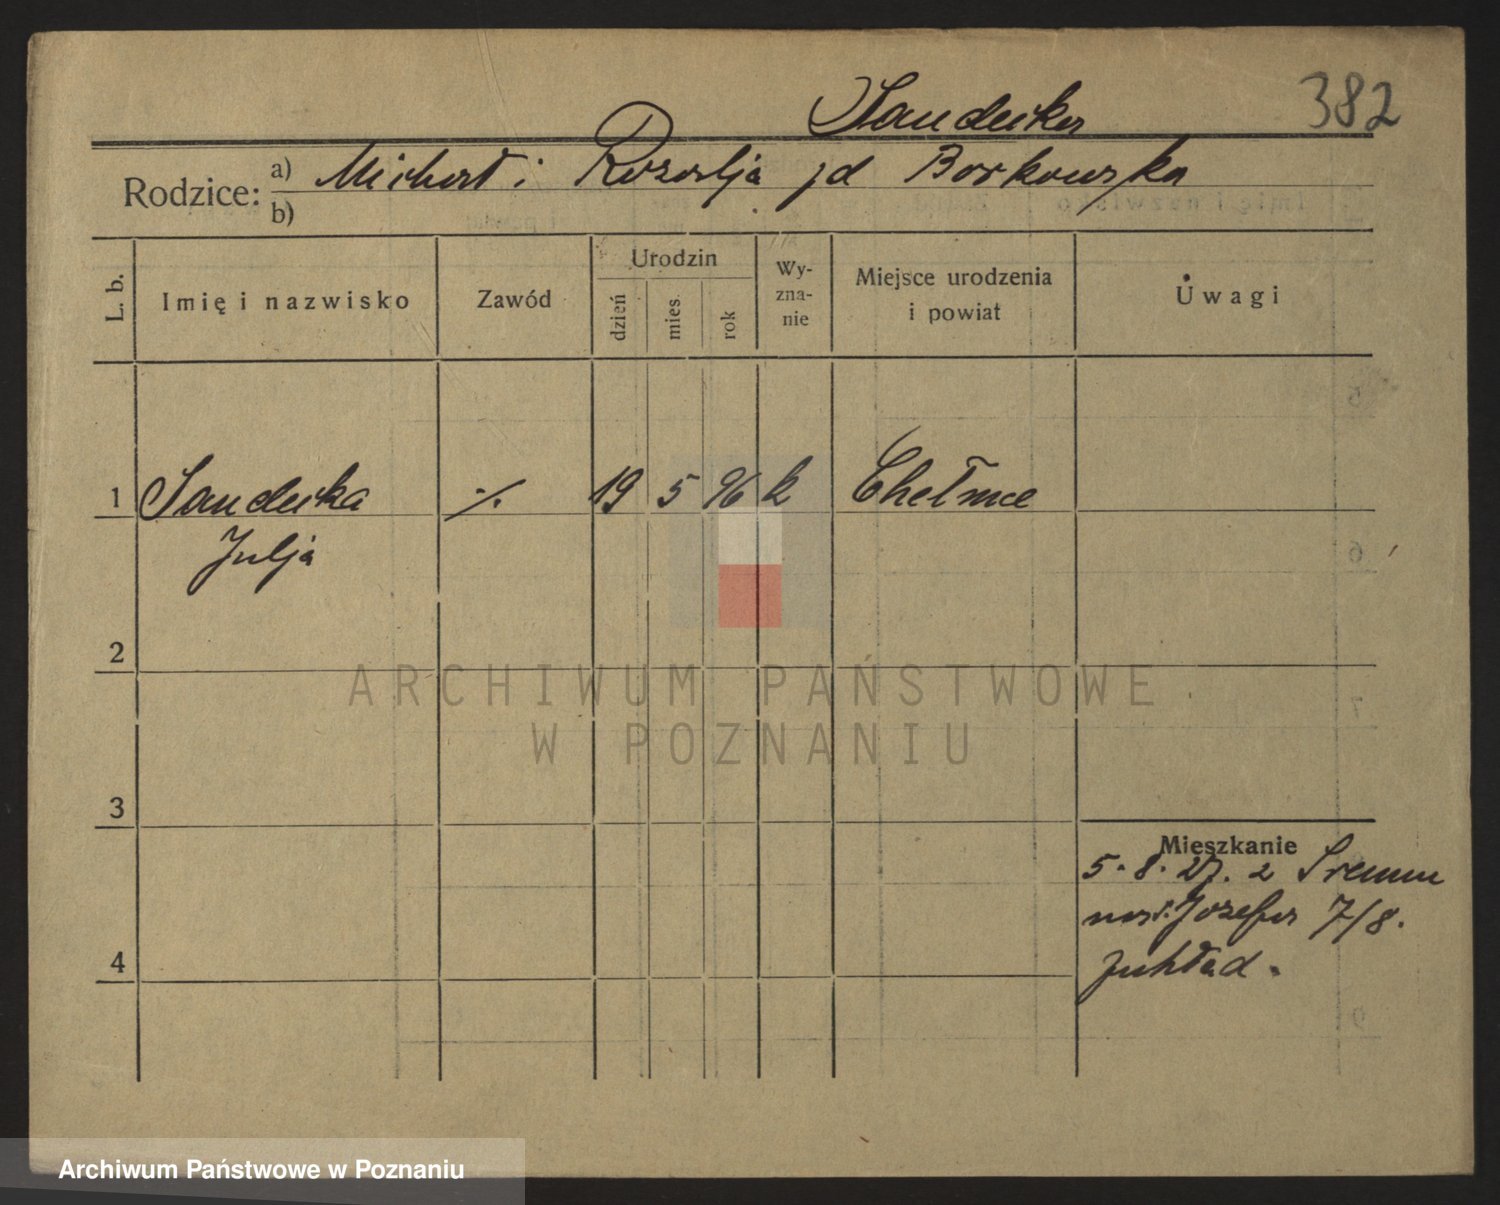 382
Sandecka
Rodzice: a) Michał i Rozalja zd Borkowska
b)
L. b.
Imię i nazwisko
Zawód
Urodzin
dzień
mies.
rok
Wy-
zna-
nie
Miejsce urodzenia
i powiat
Uwagi
1 Sandecka ./. 19 5 96 k Chełmce
Julja
2
3
4
Mieszkanie
5.8.27. z Śremu
Józefa 7/8.
zakład.
ARCHIWUM PAŃSTWOWE
W POZNANIU
Archiwum Państwowe w Poznaniu